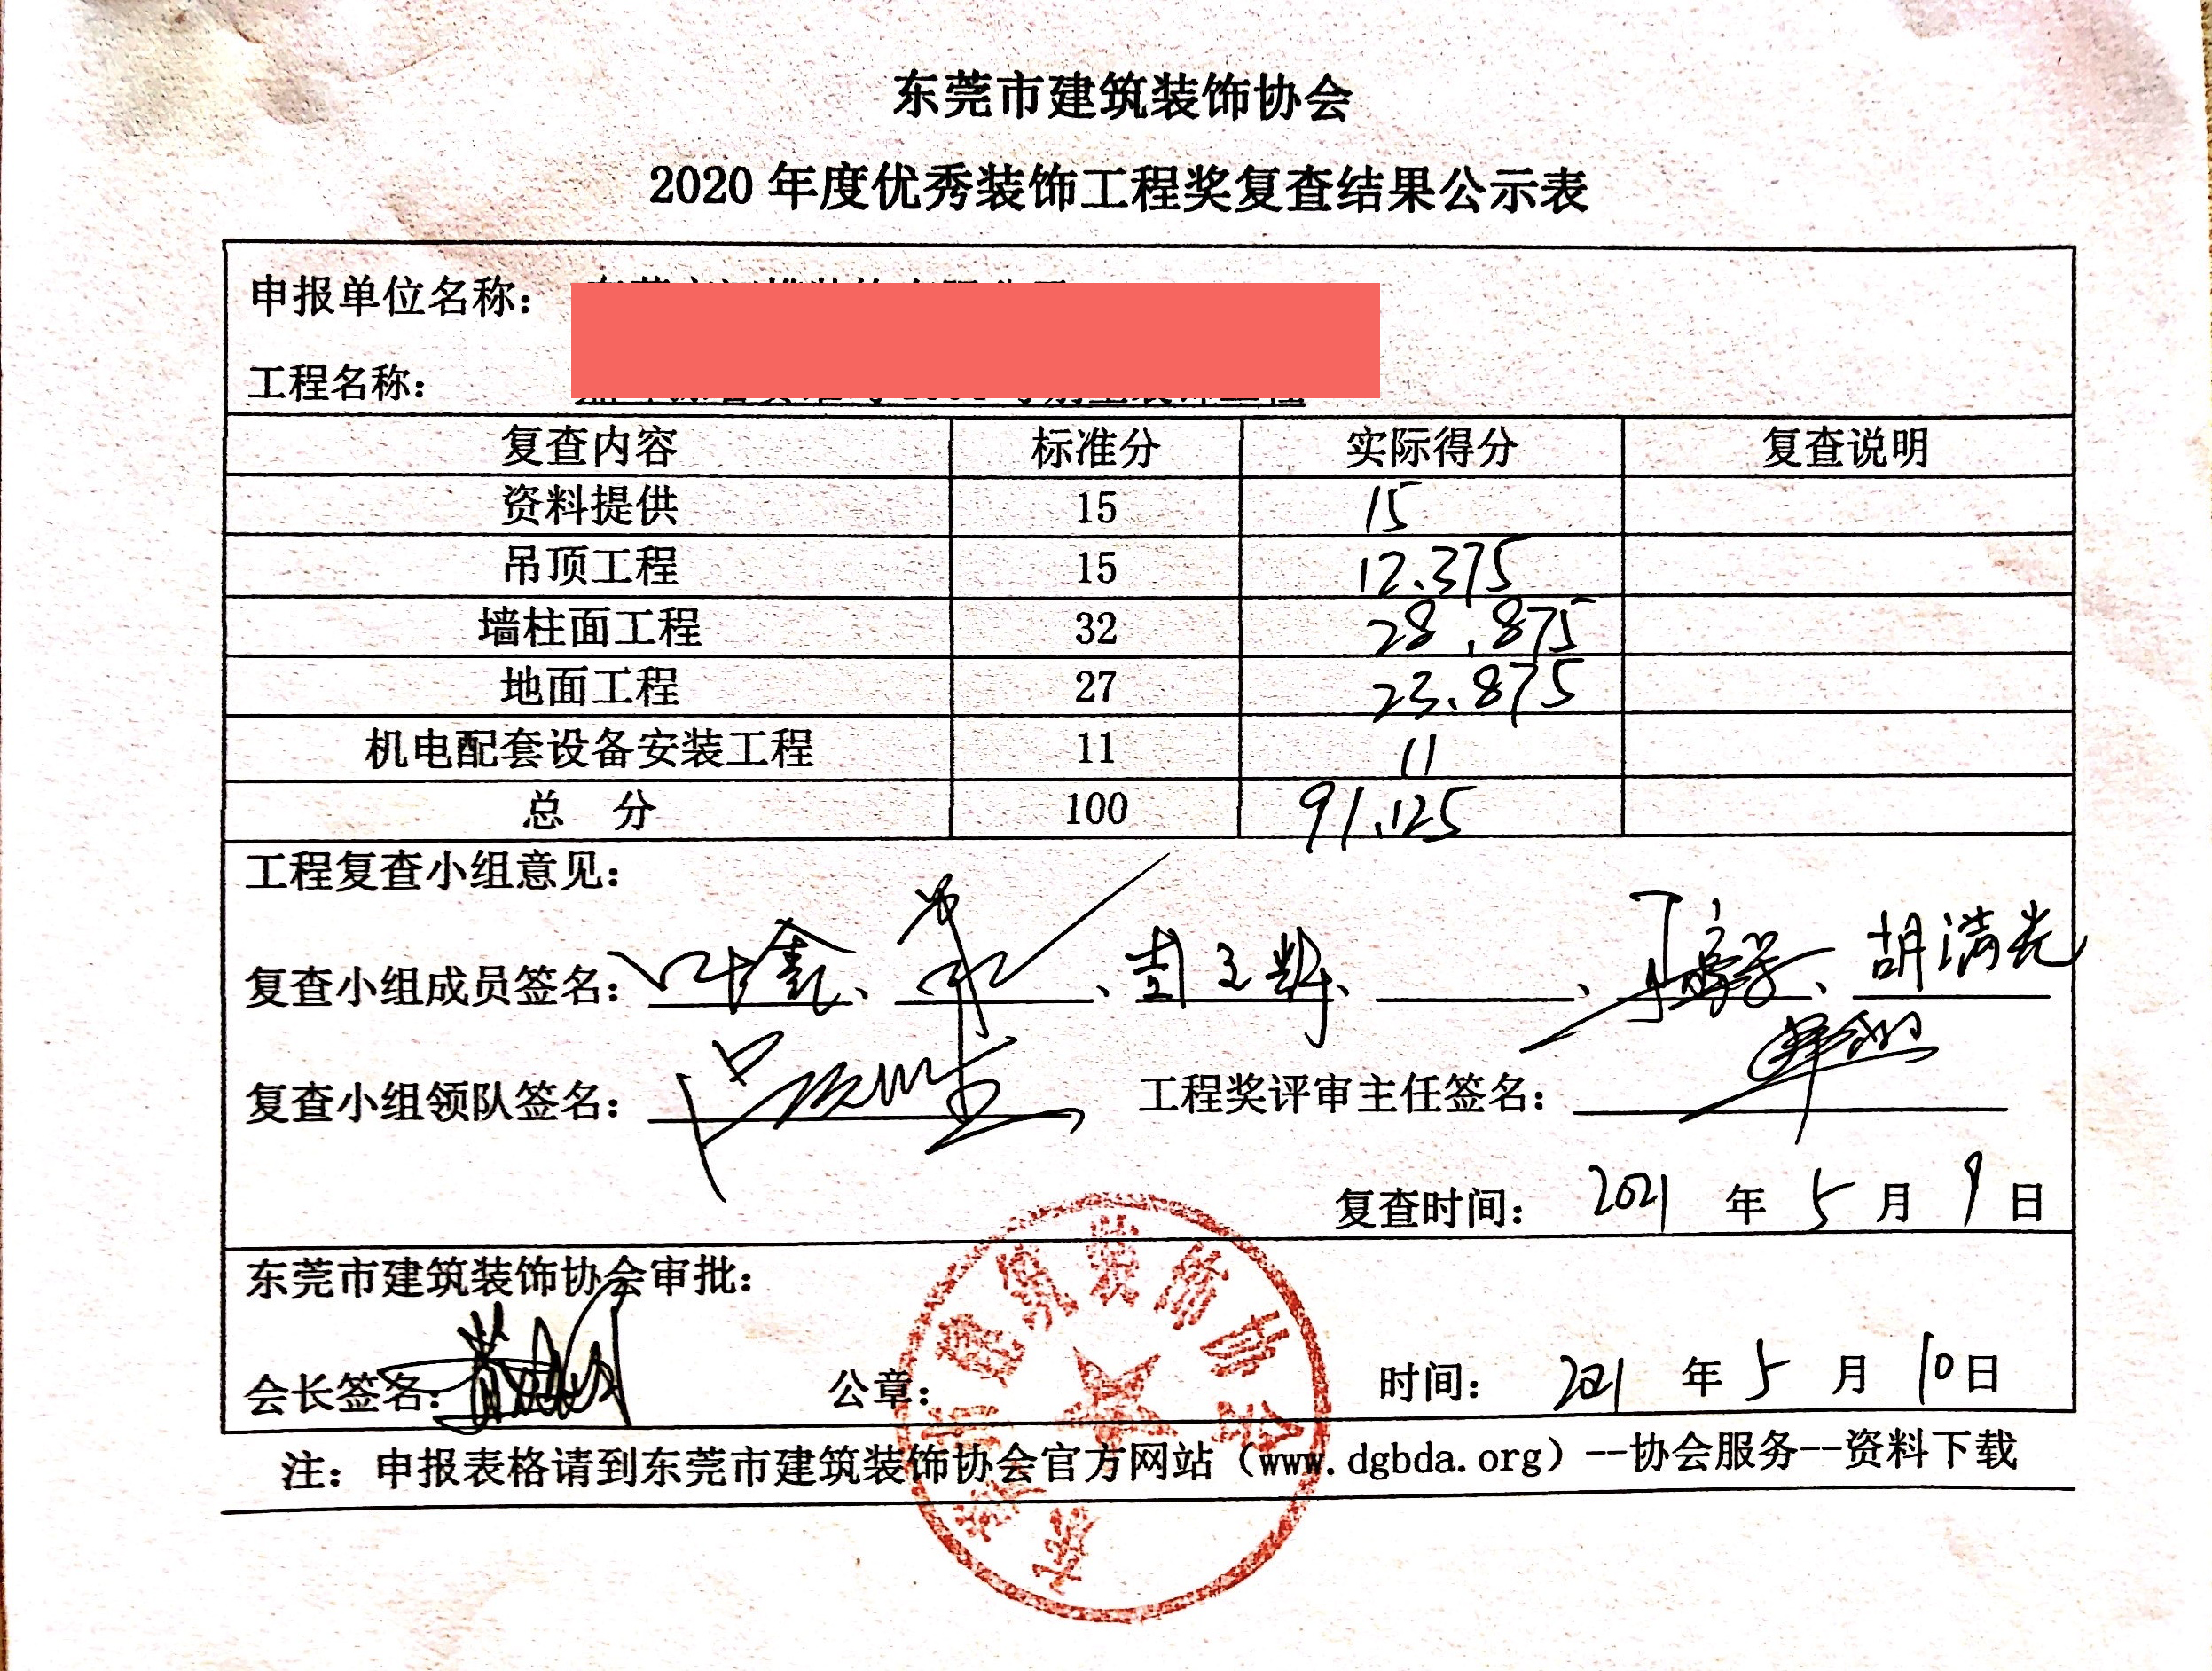 东莞市建筑装饰协会
2020 年度优秀装饰工程奖复查结果公示表
申报单位名称：
工程名称：
复查内容 标准分 实际得分 复查说明
资料提供 15 15
吊顶工程 15 12.375
墙柱面工程 32 28.875
地面工程 27 23.875
机电配套设备安装工程 11 11
总 分 100 91.125
工程复查小组意见：
复查小组成员签名：叶鑫、、、、、胡满光
复查小组领队签名： 工程奖评审主任签名：
复查时间： 2021 年 5 月 9 日
东莞市建筑装饰协会审批：
会长签名： 公章： 时间： 2021 年 5 月 10 日
东莞市建筑装饰协会
注：申报表格请到东莞市建筑装饰协会官方网站（www.dgbda.org）--协会服务--资料下载